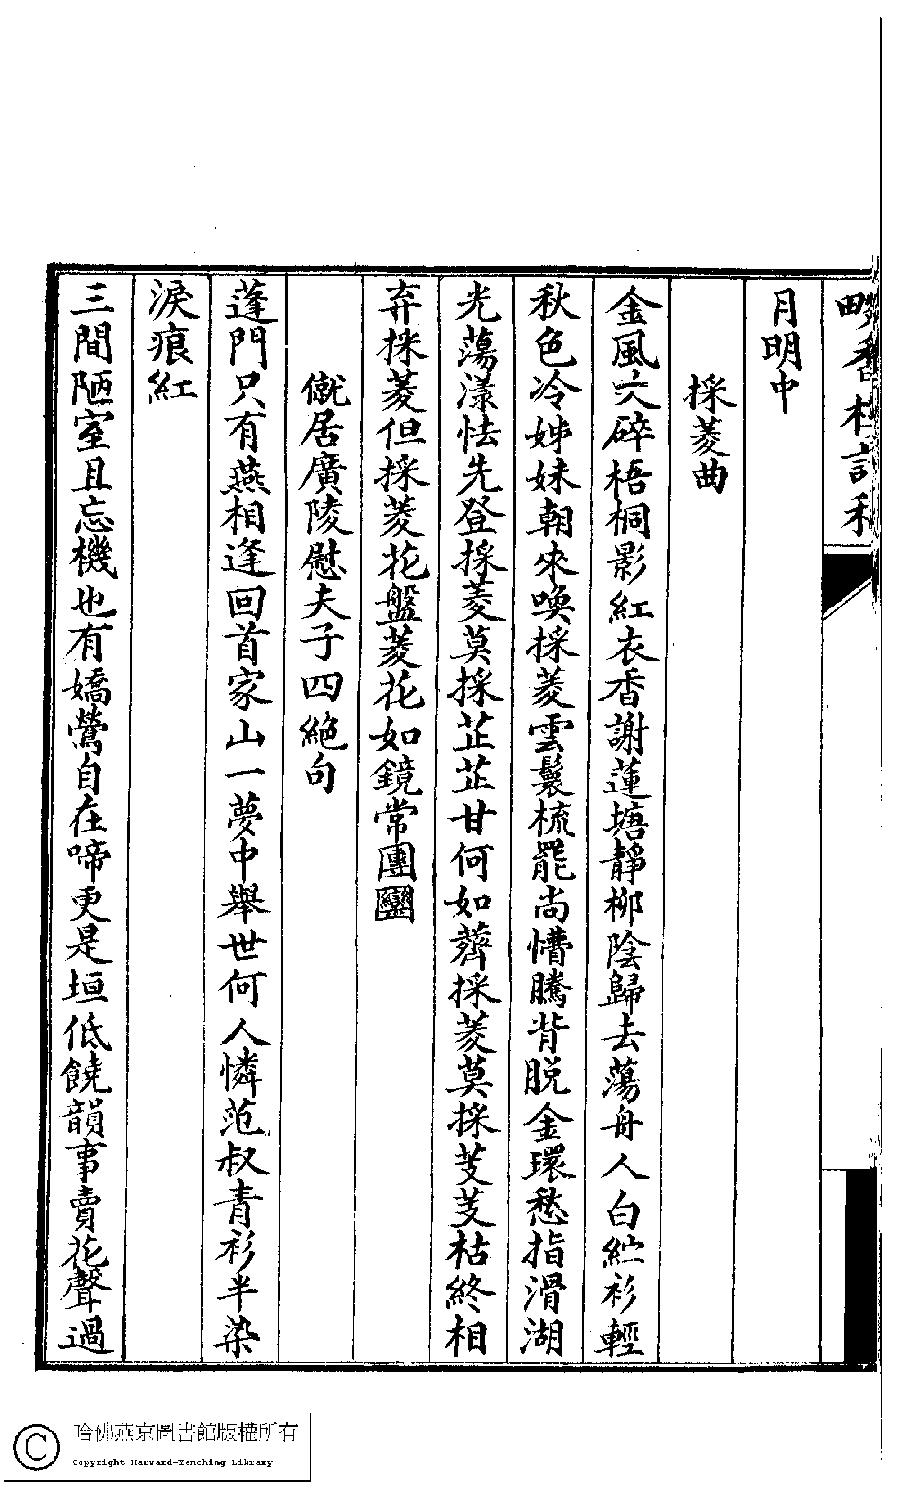 月明中
採菱曲
金風吹碎梧桐影紅衣香謝蓮塘靜柳陰歸去蕩舟人白紵衫輕
秋色冷姊妹朝來喚採菱雲鬟梳罷尚懵騰背脫金環愁指滑湖
光蕩漾怯先登採菱莫採芷芷甘何如薺採菱莫採芰芰枯終相
弃採菱但採菱花盤菱花如鏡常團圞
僦居廣陵慰夫子四絕句
蓬門只有燕相逢回首家山一夢中舉世何人憐范叔青衫半染
淚痕紅
三間陋室且忘機也有嬌鶯自在啼更是垣低饒韻事賣花聲過
哈佛燕京圖書館版權所有
Copyright Harvard-Yenching Library